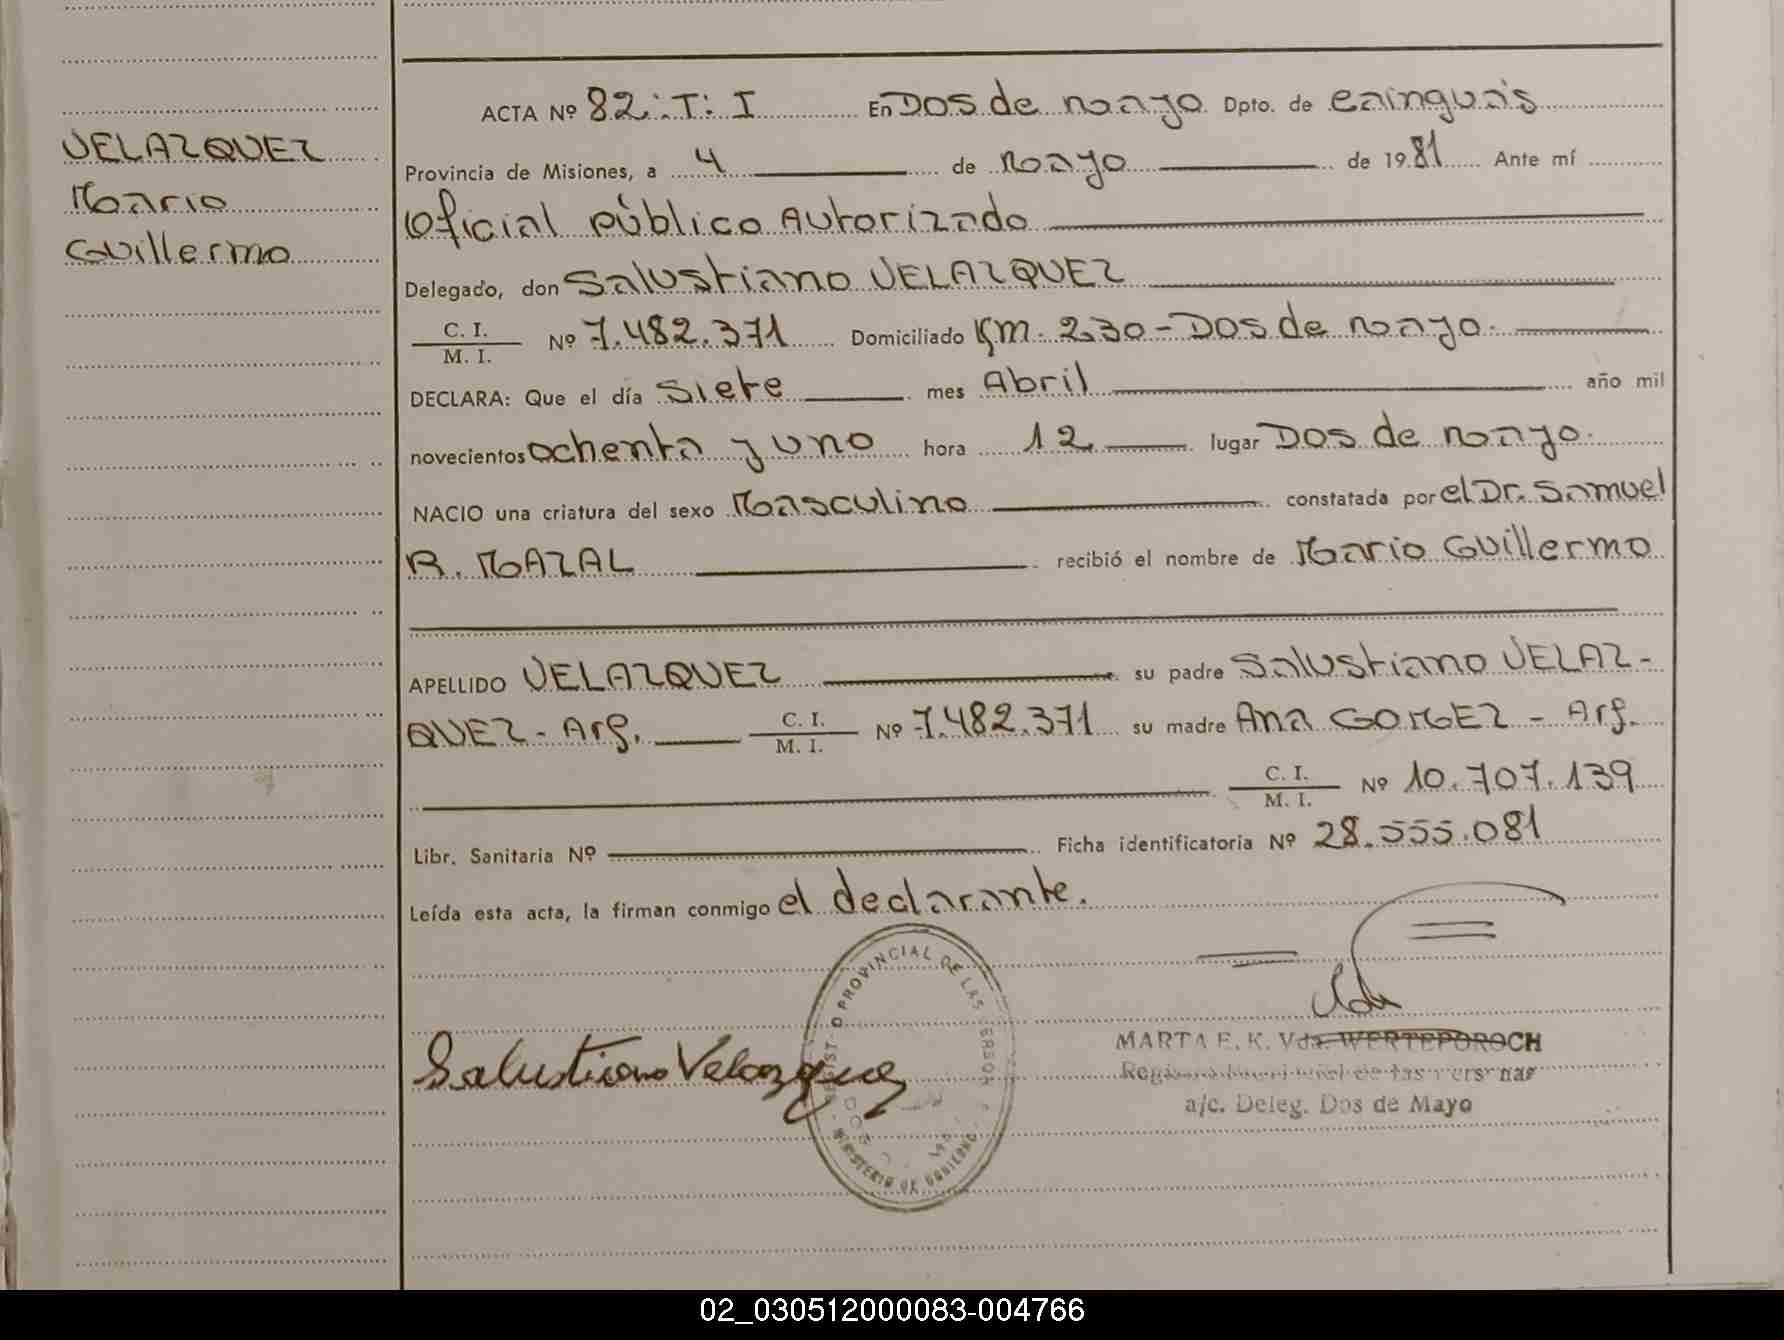 VELAZQUEZ
Mario
Guillermo
ACTA Nº 82.:T: I En DOS de mayo Dpto. de Cainguás
Provincia de Misiones, a 4 de mayo de 1981 Ante mí
Oficial público Autorizado
Delegado, don Salustiano VELAZQUEZ
C. I.
M. I. Nº 7.482.371 Domiciliado Km. 230 - DOS de mayo.
DECLARA: Que el día Siete mes Abril año mil
novecientos ochenta y uno hora 12 lugar DOS de mayo.
NACIO una criatura del sexo Masculino constatada por el Dr. Samuel
R. MAZAL recibió el nombre de Mario Guillermo
APELLIDO VELAZQUEZ su padre Salustiano VELAZ-
QUEZ - Arg. C. I. M. I. Nº 7.482.371 su madre Ana GOMEZ - Arg.
C. I. M. I. Nº 10.707.139
Libr. Sanitaria Nº Ficha identificatoria Nº 28.555.081
Leída esta acta, la firman conmigo el declarante.
PROVINCIAL DE LAS
MINISTERIO DE GOBIERNO
Salustiano Velazquez
MARTA E. K. Vda. WERTEPOROCH
a/c. Deleg. Dos de Mayo
02_030512000083-004766